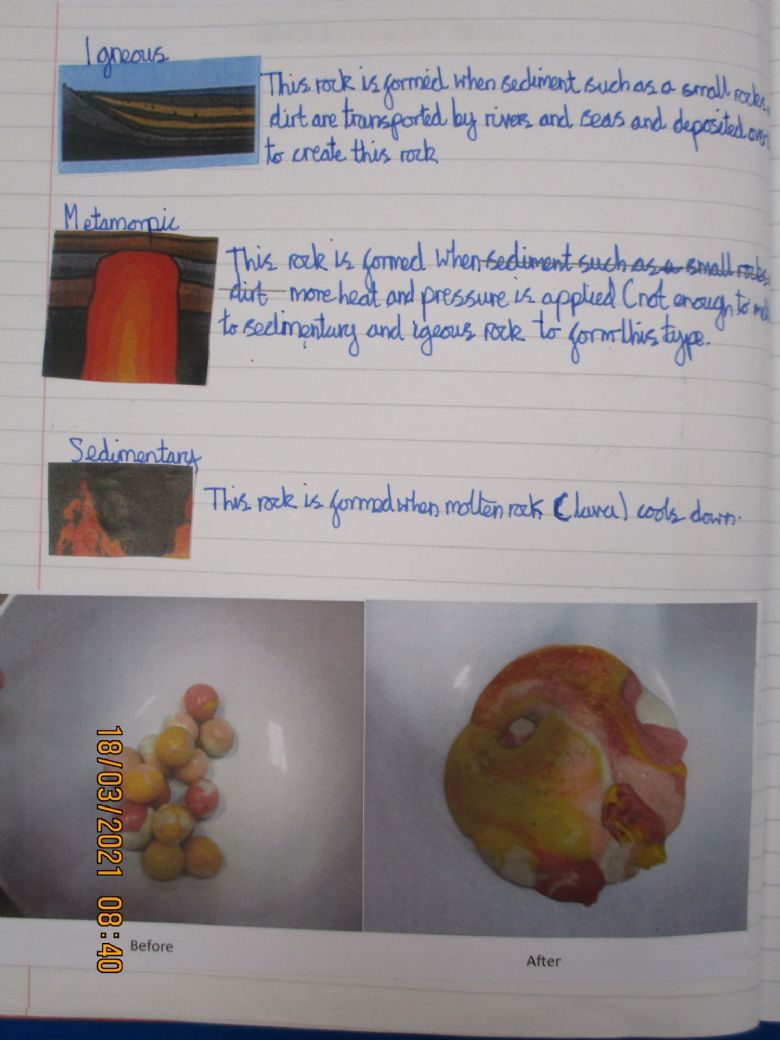 Igneous
This rock is formed when sediment such as a small rocks,
dirt are transported by rivers and seas and deposited over
to create this rock
Metamorpic
This rock is formed when sediment such as a small rocks
dirt more heat and pressure is applied (not enough to
to sedimentary and igeous rock to form this type.
Sedimentary
This rock is formed when molten rock (lava) cools down.
18/03/2021 08:40
Before
After